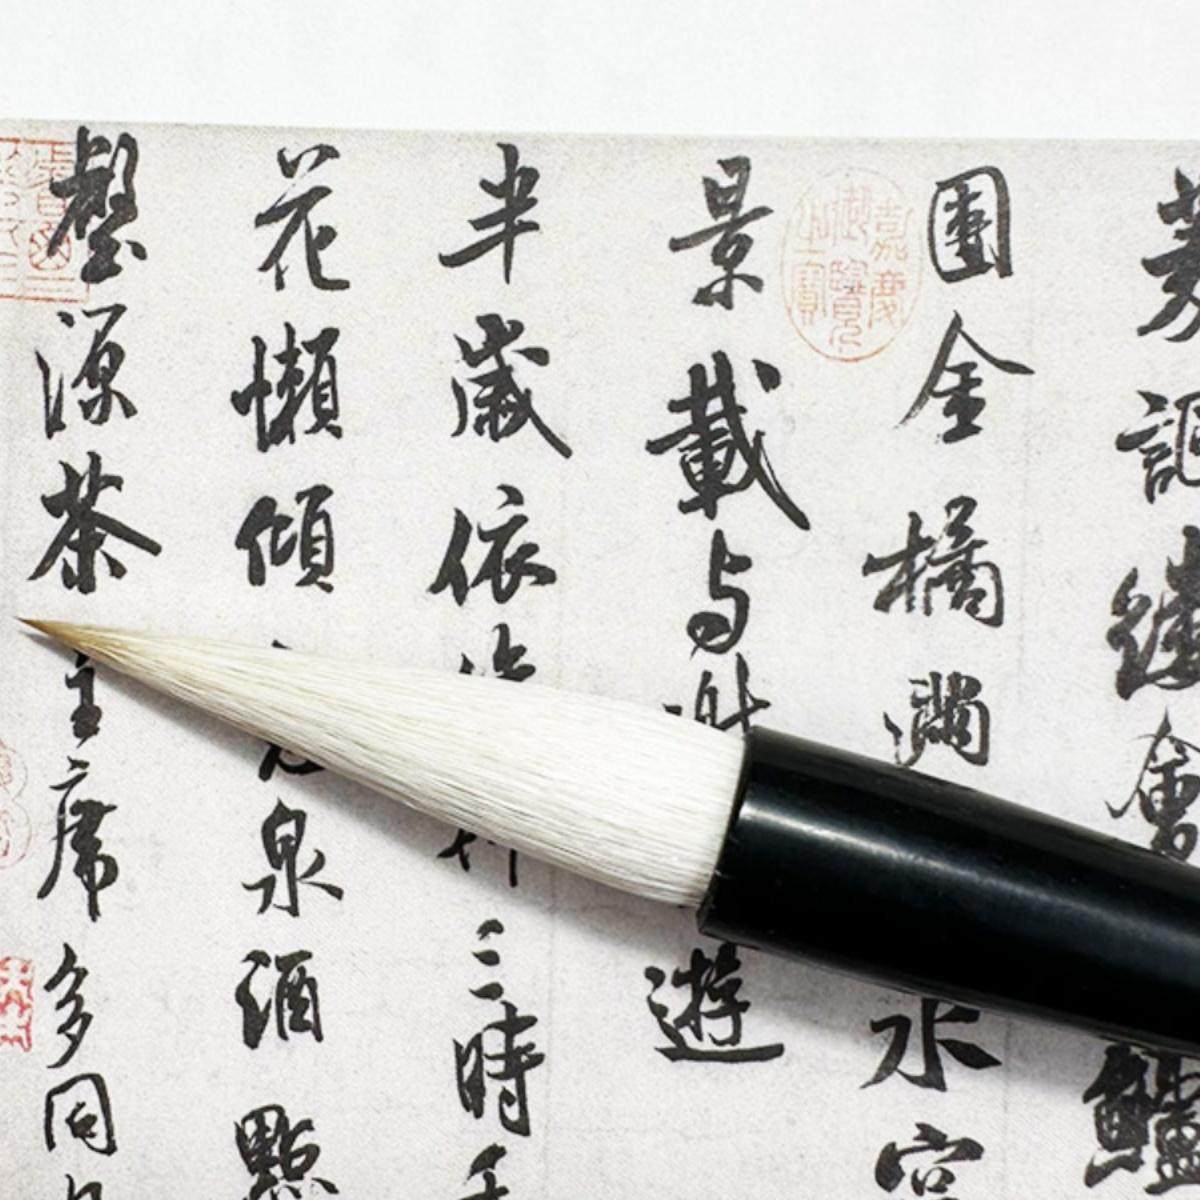 菱謳縷會鱸
團金橘滿水宮
嘉慶御覽之寶
景載与謝遊
半歲依三時
花懶傾泉酒點
壑源茶主席多同